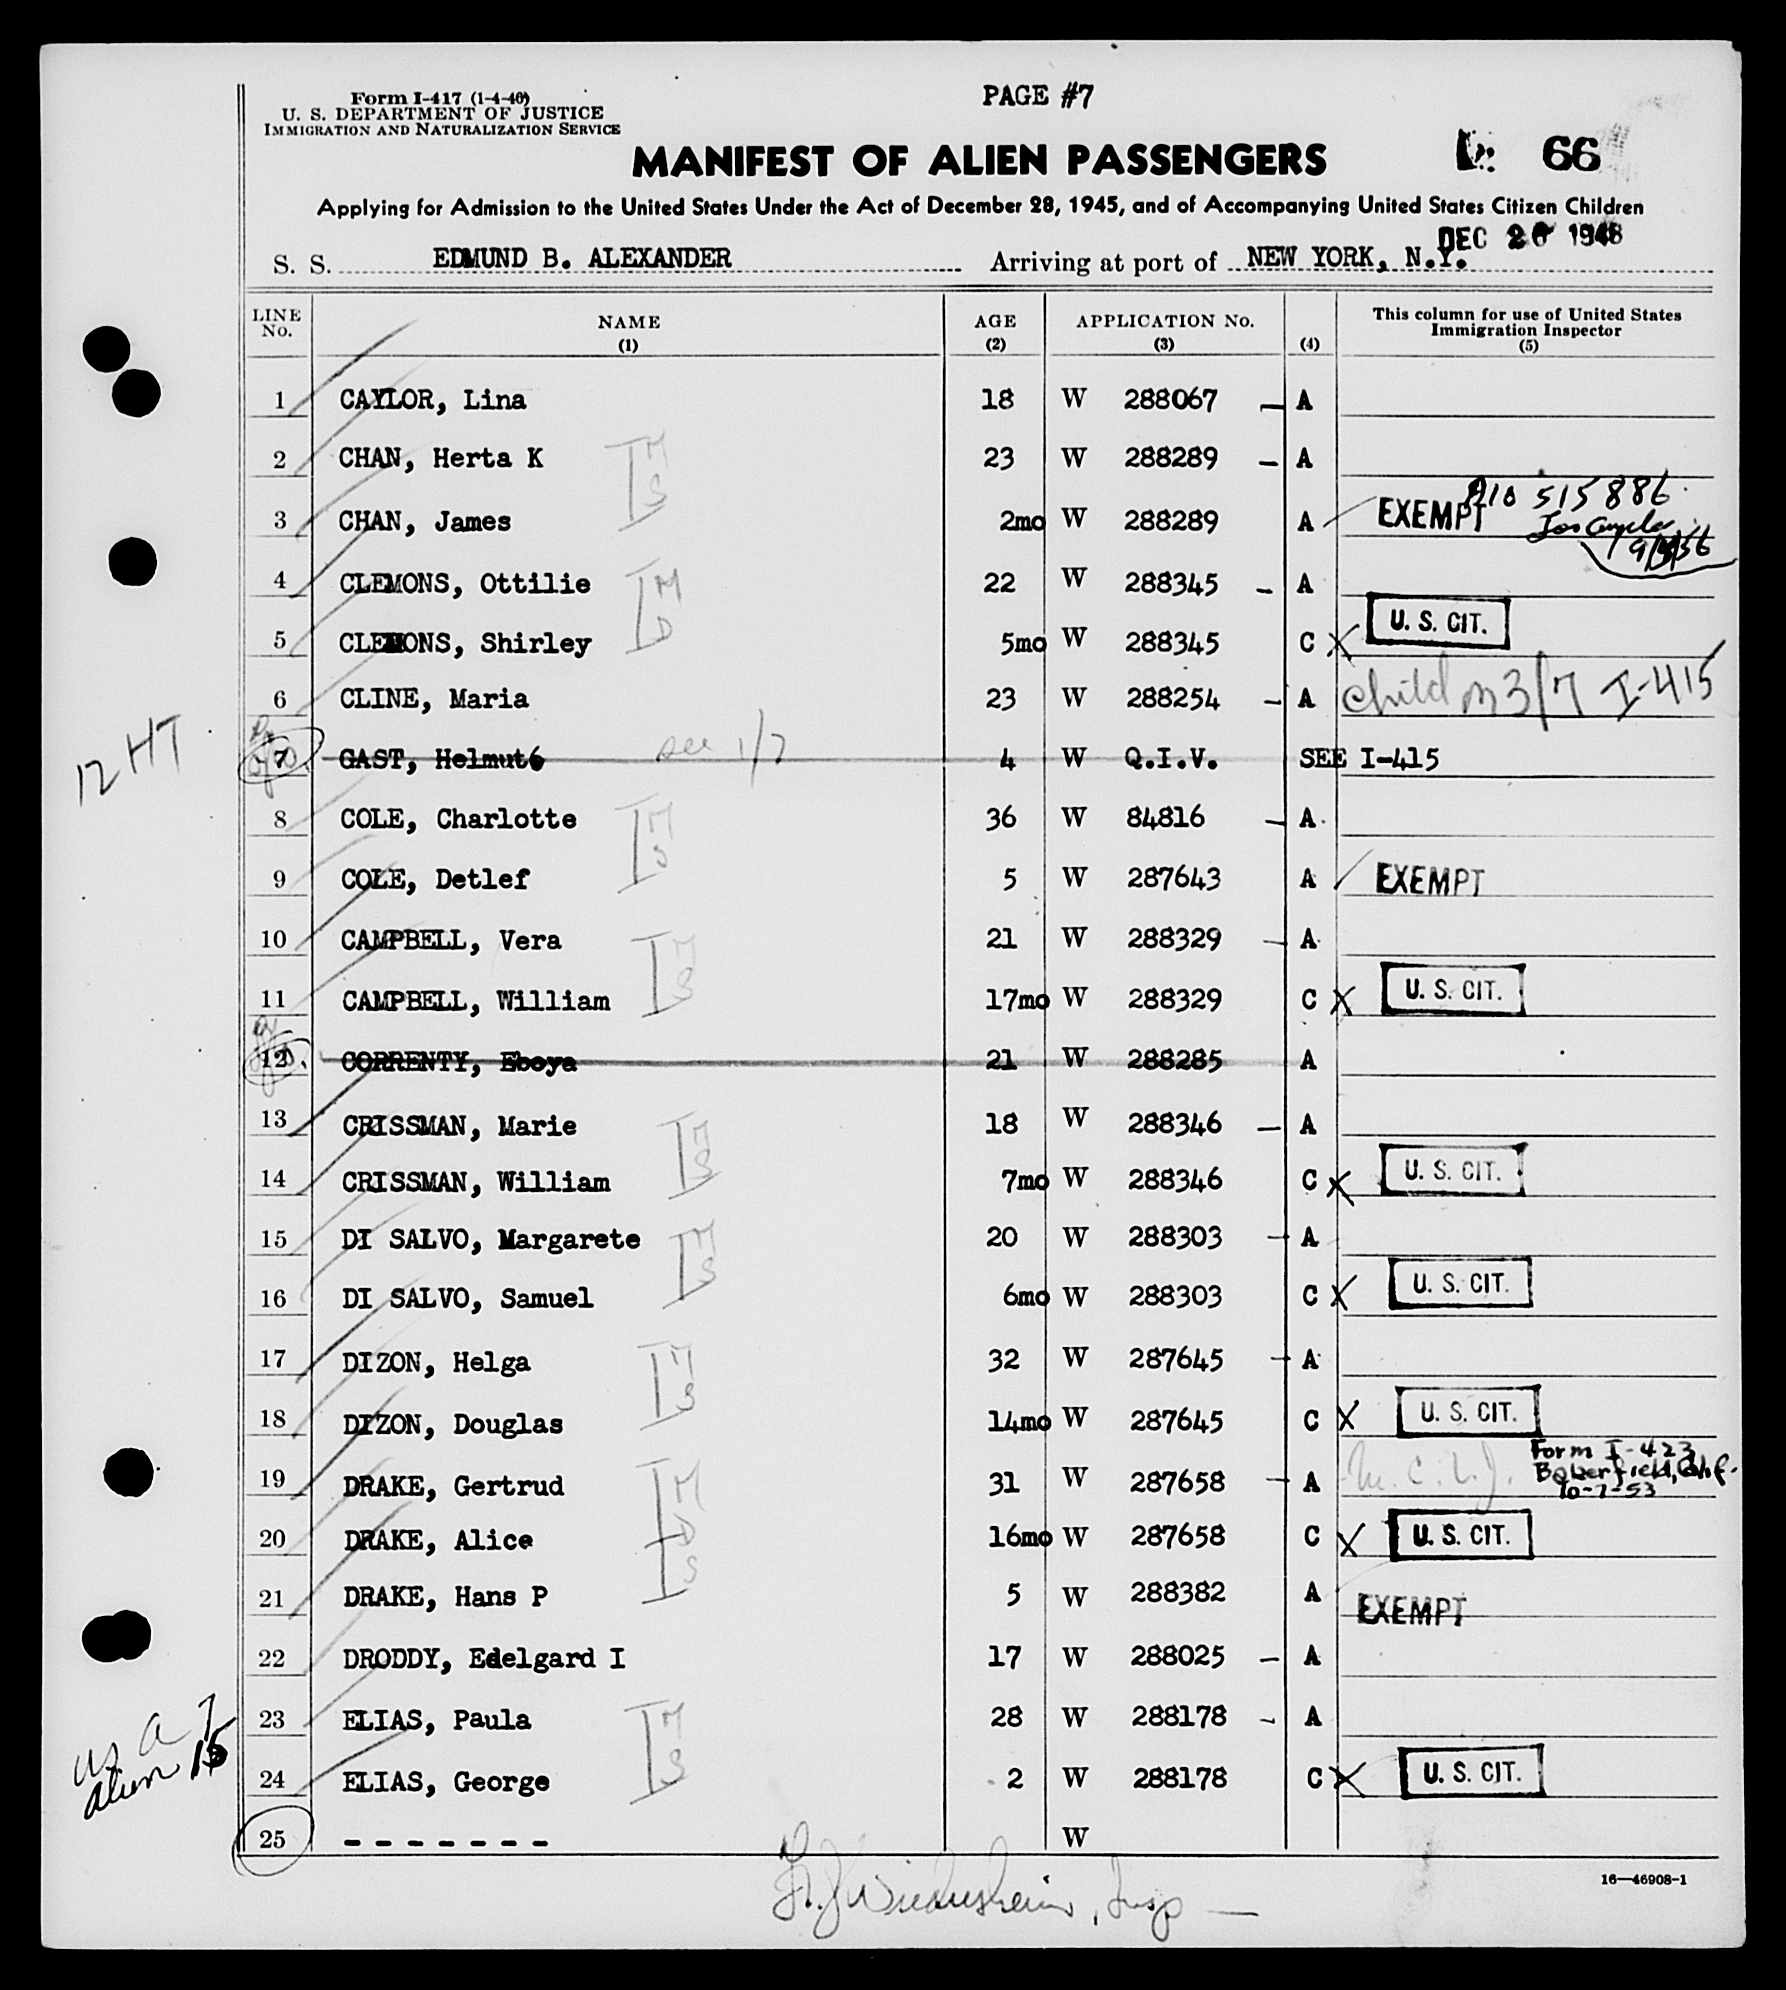 Form I-417 (1-4-46)
U. S. DEPARTMENT OF JUSTICE
IMMIGRATION AND NATURALIZATION SERVICE
PAGE #7
MANIFEST OF ALIEN PASSENGERS
66
Applying for Admission to the United States Under the Act of December 28, 1945, and of Accompanying United States Citizen Children
DEC 26 1948
S. S. EDMUND B. ALEXANDER Arriving at port of NEW YORK, N.Y.
LINE No. NAME (1) AGE (2) APPLICATION No. (3) (4) This column for use of United States Immigration Inspector (5)
1 CAYLOR, Lina 18 W 288067 — A
2 CHAN, Herta K 23 W 288289 — A
M
S
3 CHAN, James 2mo W 288289 A EXEMPT A10 515 886
Los Angeles
4 CLEMONS, Ottilie 22 W 288345 - A
M
D
5 CLEMONS, Shirley 5mo W 288345 C X U. S. CIT.
6 CLINE, Maria 23 W 288254 - A child on 3/7 I-415
12 HT
7 GAST, Helmut6 see 1/7 4 W Q.I.V. SEE I-415
8 COLE, Charlotte 36 W 84816 — A
M
S
9 COLE, Detlef 5 W 287643 A EXEMPT
10 CAMPBELL, Vera 21 W 288329 — A
M
S
11 CAMPBELL, William 17mo W 288329 C X U. S. CIT.
12 CORRENTY, Eboya 21 W 288285 A
13 CRISSMAN, Marie 18 W 288346 — A
M
S
14 CRISSMAN, William 7mo W 288346 C X U. S. CIT.
15 DI SALVO, Margarete 20 W 288303 — A
M
S
16 DI SALVO, Samuel 6mo W 288303 C X U. S. CIT.
17 DIZON, Helga 32 W 287645 — A
M
S
18 DIZON, Douglas 14mo W 287645 C X U. S. CIT.
19 DRAKE, Gertrud 31 W 287658 — A Form I-423
Bakerfield, Calif.
10-7-53
M
D
S
20 DRAKE, Alice 16mo W 287658 C X U. S. CIT.
21 DRAKE, Hans P 5 W 288382 A EXEMPT
22 DRODDY, Edelgard I 17 W 288025 — A
23 ELIAS, Paula 28 W 288178 - A
M
S
us a 7
alien 15
24 ELIAS, George 2 W 288178 C X U. S. CIT.
25 - - - - - - - W
Insp —
16—46908-1